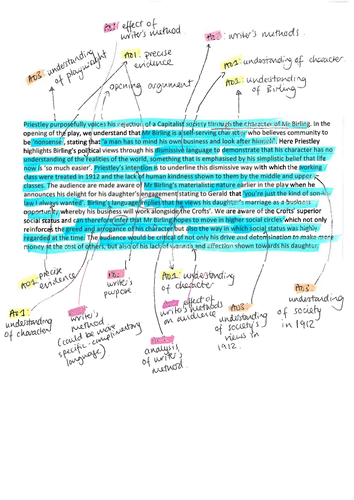 AO2: effect of
writer's method
AO1: precise
evidence
AO2: writer's methods
AO3: understanding
of playwright
AO1: understanding of character
opening argument
AO1: understanding
of Birling
Priestley purposefully voices his rejection of a Capitalist society through the character of Mr Birling. In the
opening of the play, we understand that Mr Birling is a self-serving character who believes community to
be 'nonsense', stating that 'a man has to mind his own business and look after himself'. Here Priestley
highlights Birling's political views through his dismissive language to demonstrate that his character has no
understanding of the realities of the world, something that is emphasised by his simplistic belief that life
now is 'so much easier'. Priestley's intention is to underline this dismissive way with which the working
class were treated in 1912 and the lack of human kindness shown to them by the middle and upper
classes. The audience are made aware of Mr Birling's materialistic nature earlier in the play when he
announces his delight for his daughter's engagement stating to Gerald that 'you're just the kind of son-in-
law I always wanted'. Birling's language implies that he views his daughter's marriage as a business
opportunity whereby his business will work alongside the Crofts'. We are aware of the Crofts' superior
social status and can therefore infer that Mr Birling hopes to move in higher social circles which not only
reinforces the greed and arrogance of his character but also the way in which social status was highly
regarded at the time. The audience would be critical of not only his drive and determination to make more
money at the cost of others, but also of his lack of warmth and affection shown towards his daughter.
AO1 precise
evidence
AO1:
understanding
of character
writer's
method
(could be more
specific - complimentary
language)
writer's
purpose
AO1: understanding
of character
effect of
writer's methods
on audience
AO2:
analysis
of writer's
method.
AO3
understanding
of society's
views in
1912.
AO3
understanding
of society
in 1912